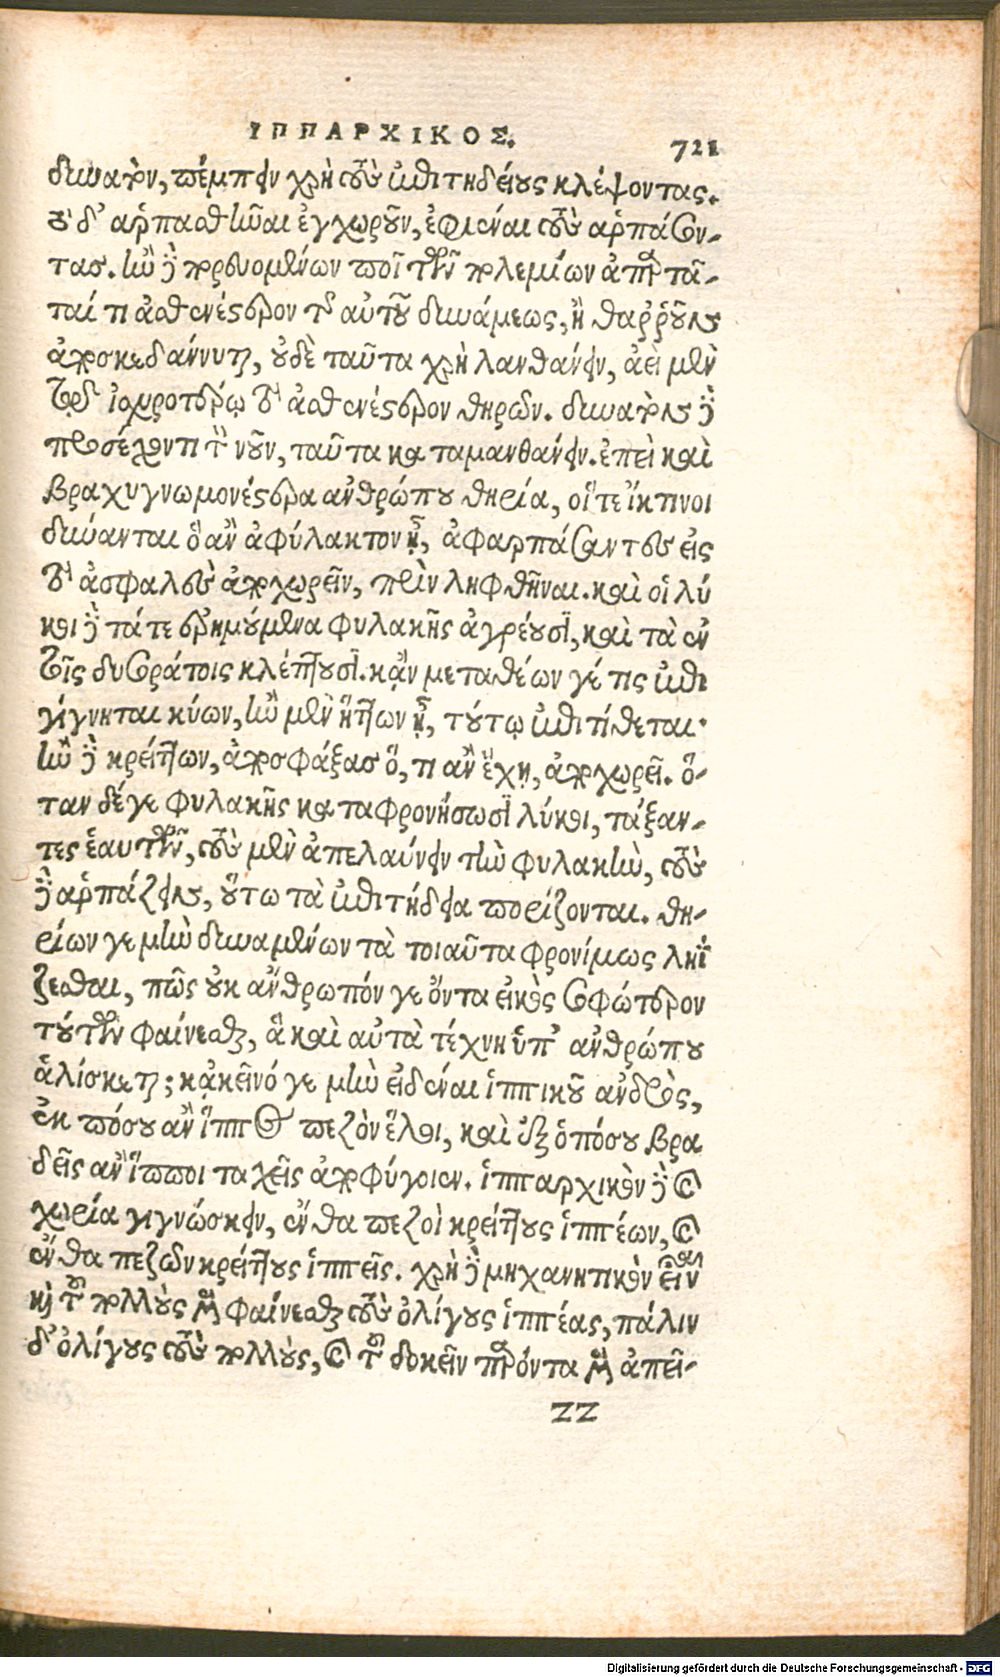 ΙΠΠΑΡΧΙΚΟΣ.
721
δυνατὸν, πέμπειν χρὴ τοὺς ἐπιτηδείους κλέψοντας.
ὃ δ' ἁρπασθῆναι ἐγχωροῦν, ἐφιέναι τοὺς ἁρπάσον-
τας. ἢν δὲ πορευομένων ποῖ τῶν πολεμίων ἀπαρτᾶ-
ταί τι ἀσθενέστερον τῆς αὐτοῦ δυνάμεως, ἢ θαῤῥοῦν
ἀποσκεδάννυται, οὐδὲ ταῦτα χρὴ λανθάνειν, ἀεὶ μὲν
τῷ ἰσχυροτέρῳ τὸ ἀσθενέστερον θηρῶν. δυνατὸν δὲ
προσέχοντι τὸν νοῦν, ταῦτα καταμανθάνειν. ἐπεὶ καὶ
βραχυγνωμονέστερα ἀνθρώπου θηρία, οἵ τε ἴκτινοι
δύνανται ὃ ἂν ἀφύλακτον ᾖ, ἀφαρπάσαντες εἰς
τὸ ἀσφαλὲς ἀποχωρεῖν, πρὶν ληφθῆναι. καὶ οἱ λύ
κοι δὲ τά τε ἐρημούμενα φυλακῆς ἀγρεύουσι, καὶ τὰ ἐν
τοῖς δυσοράτοις κλέπτουσι. κἂν μεταθέων γέ τις ἐπι
γίγνηται κύων, ἢν μὲν ἥττων ᾖ, τούτῳ ἐπιτίθεται·
ἢν δὲ κρείττων, ἀποσφάξας ὅ, τι ἂν ἔχῃ, ἀποχωρεῖ. ὅ-
ταν δέ γε φυλακῆς καταφρονήσωσι λύκοι, τάξαν-
τες ἑαυτῶν, τοὺς μὲν ἀπελαύνειν τὴν φυλακὴν, τοὺς
δὲ ἁρπάζειν, οὕτω τὰ ἐπιτήδεια πορίζονται. θη-
ρίων γε μὴν δυναμένων τὰ τοιαῦτα φρονίμως ληΐ
ζεσθαι, πῶς οὐκ ἄνθρωπόν γε ὄντα εἰκὸς σοφώτερον
τούτων φαίνεσθαι, ἃ καὶ αὐτὰ τέχνῃ ὑπ' ἀνθρώπου
ἁλίσκεται; κἀκεῖνό γε μὴν εἰδέναι ἱππικοῦ ἀνδρὸς,
ἐκ πόσου ἂν ἵππος πεζὸν ἕλοι, καὶ ἐξ ὁπόσου βρα
δεῖς ἂν ἵπποι ταχεῖς ἀποφύγοιεν. ἱππαρχικὸν δὲ καὶ
χωρία γιγνώσκειν, ἔνθα πεζοὶ κρείττους ἱππέων, καὶ
ἔνθα πεζῶν κρείττους ἱππεῖς. χρὴ δὲ μηχανητικὸν εἶναι
καὶ τοῦ πολλοὺς μὲν φαίνεσθαι τοὺς ὀλίγους ἱππέας, πάλιν
δ' ὀλίγους τοὺς πολλοὺς, καὶ τοῦ δοκεῖν παρόντα μὲν ἀπεῖ-
ZZ
Digitalisierung gefördert durch die Deutsche Forschungsgemeinschaft - DFG